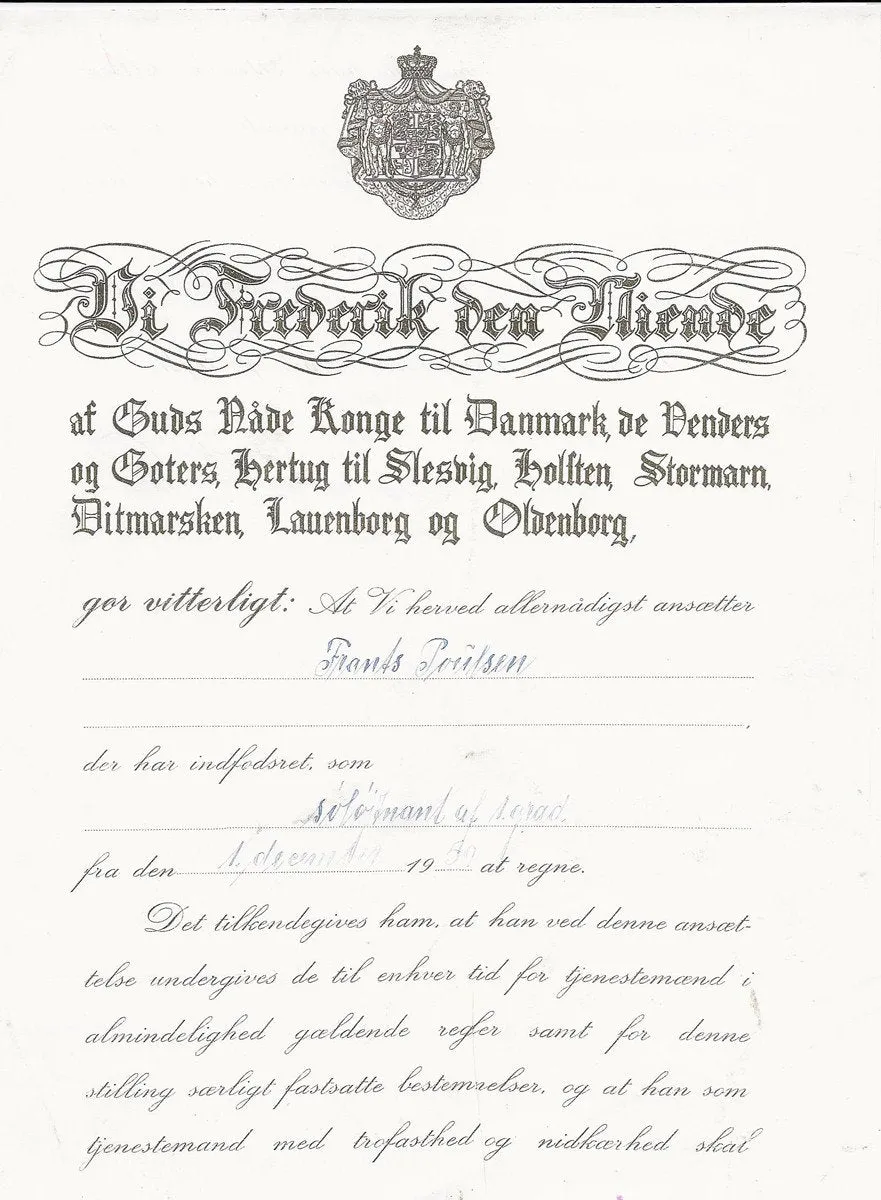 Vi Frederik den Niende
af Guds Nåde Konge til Danmark, de Venders
og Goters, Hertug til Slesvig, Holsten, Stormarn,
Ditmarsken, Lauenborg og Oldenborg,
gør vitterligt: At Vi herved allernådigst ansætter
Frants Poulsen
der har indfødsret, som
søløjtnant af 1. grad
fra den 1. december 19 at regne.
Det tilkendegives ham, at han ved denne ansæt-
telse undergives de til enhver tid for tjenestemænd i
almindelighed gældende regler samt for denne
stilling særligt fastsatte bestemmelser, og at han som
tjenestemand med trofasthed og nidkærhed skal